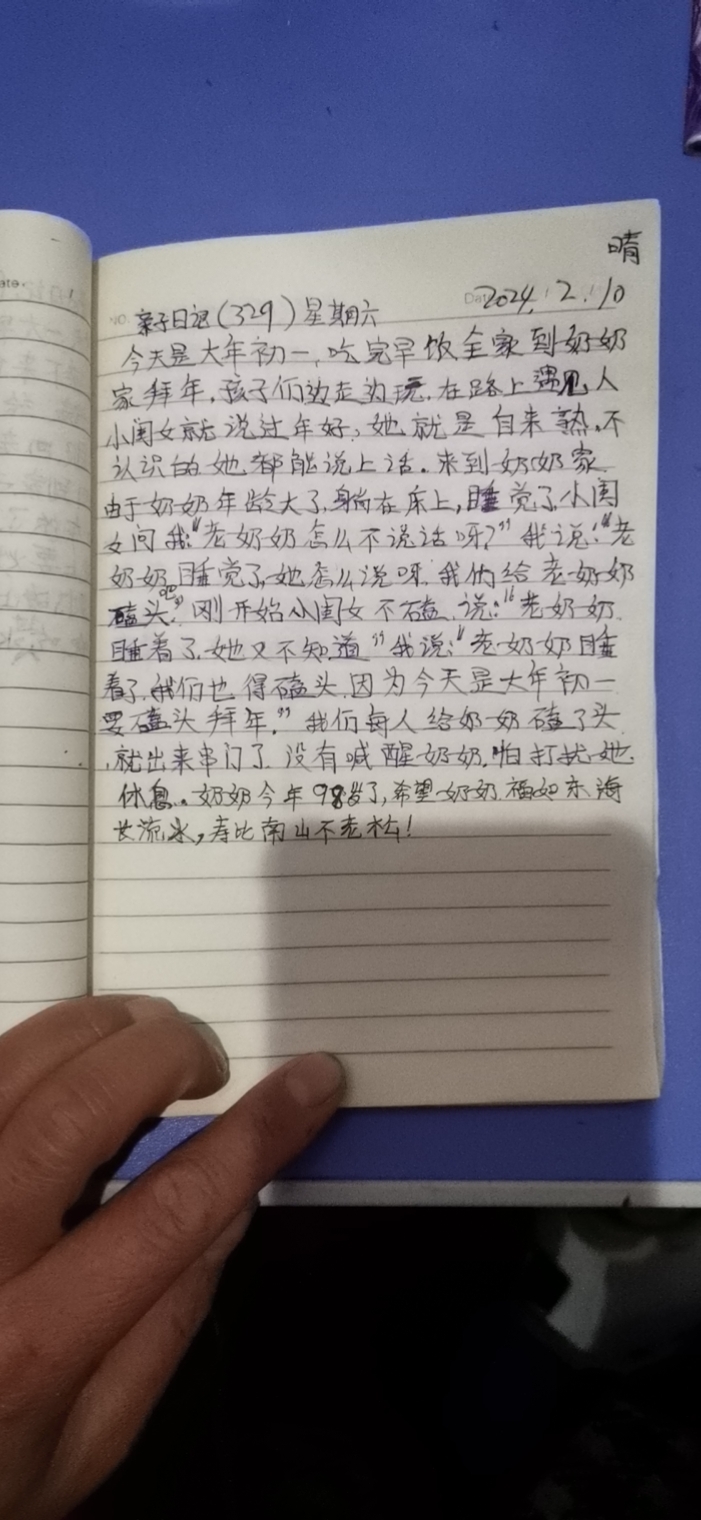 晴
Date 2024.2.10
NO. 亲子日记(329)星期六
今天是大年初一,吃完早饭全家到奶奶
家拜年,孩子们边走边玩.在路上遇见人
小闺女就说过年好,她就是自来熟,不
认识的她都能说上话.来到奶奶家
由于奶奶年龄大了,躺在床上,睡觉了.小闺
女问我:"老奶奶怎么不说话呀?"我说:"老
奶奶睡觉了,她怎么说呀.我们给老奶奶
磕头吧."刚开始小闺女不磕.说:"老奶奶
睡着了.她又不知道"我说:"老奶奶睡
着了.我们也得磕头.因为今天是大年初一
要磕头拜年."我们每人给奶奶磕了头
,就出来串门了.没有喊醒奶奶.怕打扰她
休息.奶奶今年98岁了,希望奶奶.福如东海
长流水,寿比南山不老松!
ate.